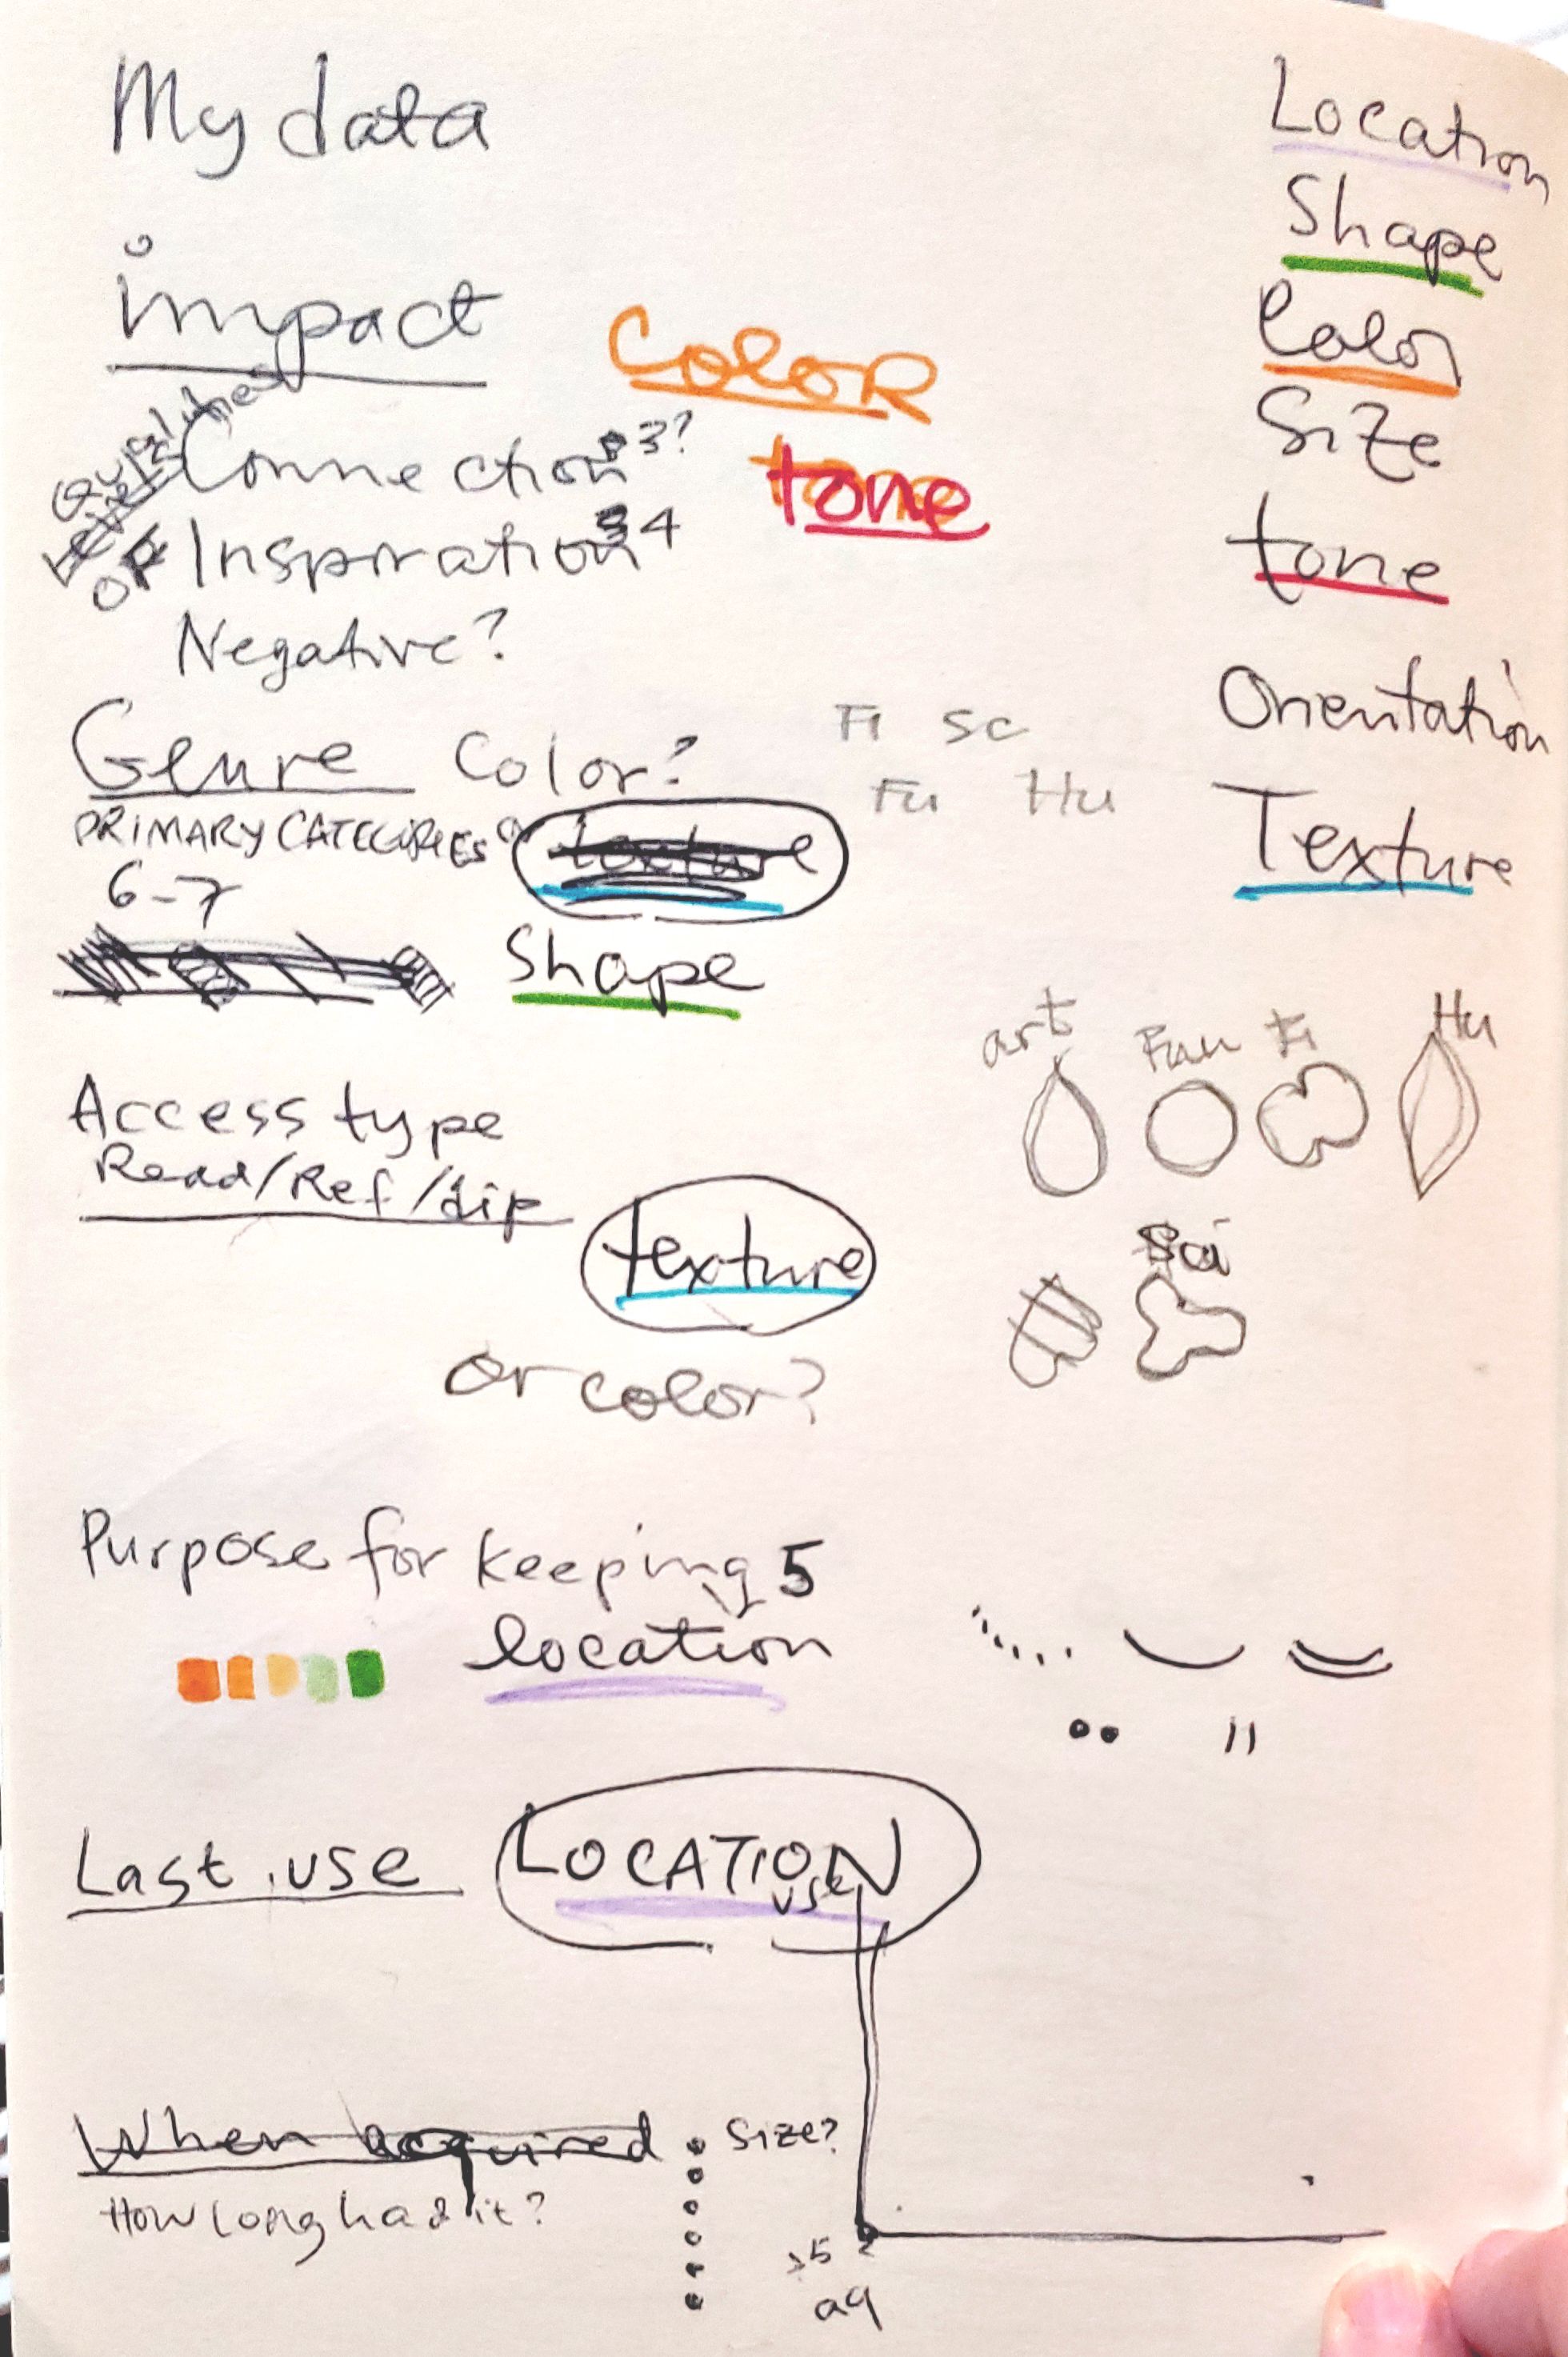 My data
Location
Shape
Color
Size
tone
Orientation
Texture
impact
COLOR
tone
Connection 3?
OR Inspiration 4
Negative?
Genre Color?
FI Sc
Fu Hu
PRIMARY CATEGORIES
6-7
texture
Shape
art Fun Fi Hu
Sci
Access type
Read/Ref/dip
texture
or color?
Purpose for keeping 5
location
Last use LOCATION
use
When acquired
Size?
How long had it?
5
aq